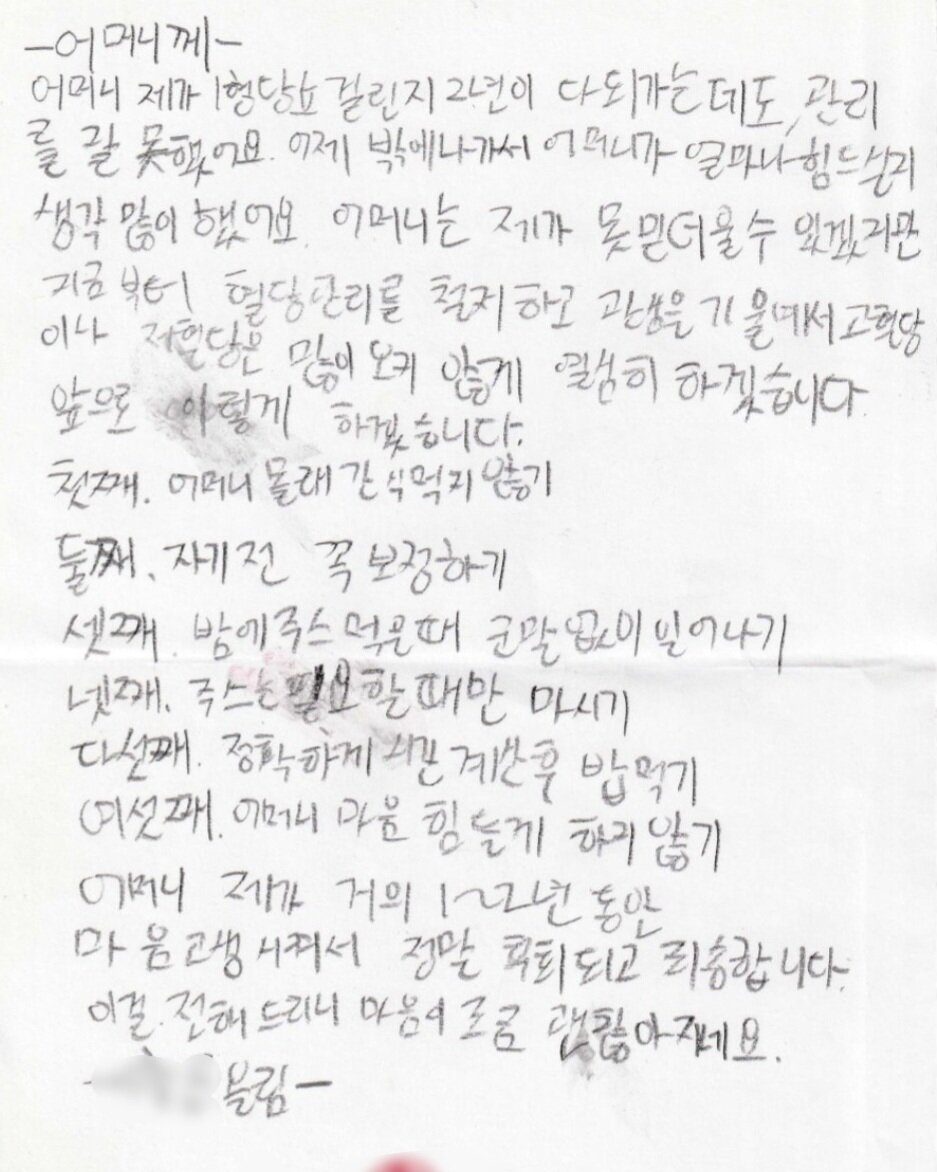 -어머니께-
어머니 제가 1형당뇨 걸린지 2년이 다되가는데도, 관리
를 잘 못했어요. 어제 밖에나가서 어머니가 얼마나 힘드실지
생각 많이 했어요. 어머니는 제가 못믿더울수 있겠지만
지금부터 혈당관리를 철저하고 관심을 기울여서 고혈당
이나 저혈당은 많이 오지 않게 열심히 하겠습니다
앞으로 이렇게 하겠습니다.
첫째. 어머니 몰래 간식먹지 않기
둘째. 자기전 꼭 보정하기
셋째. 밤에 주스 먹을때 군말 없이 일어나기
넷째. 주스는 필요할때만 마시기
다섯째. 정확하게 계산후 밥먹기
여섯째. 어머니 마음 힘들게 하지 않기
어머니 제가 거의 1~2년 동안
마음고생 시켜서 정말 후회되고 죄송합니다.
이걸 전해 드리니 마음이 조금 괜찮아지세요.
- 올림-